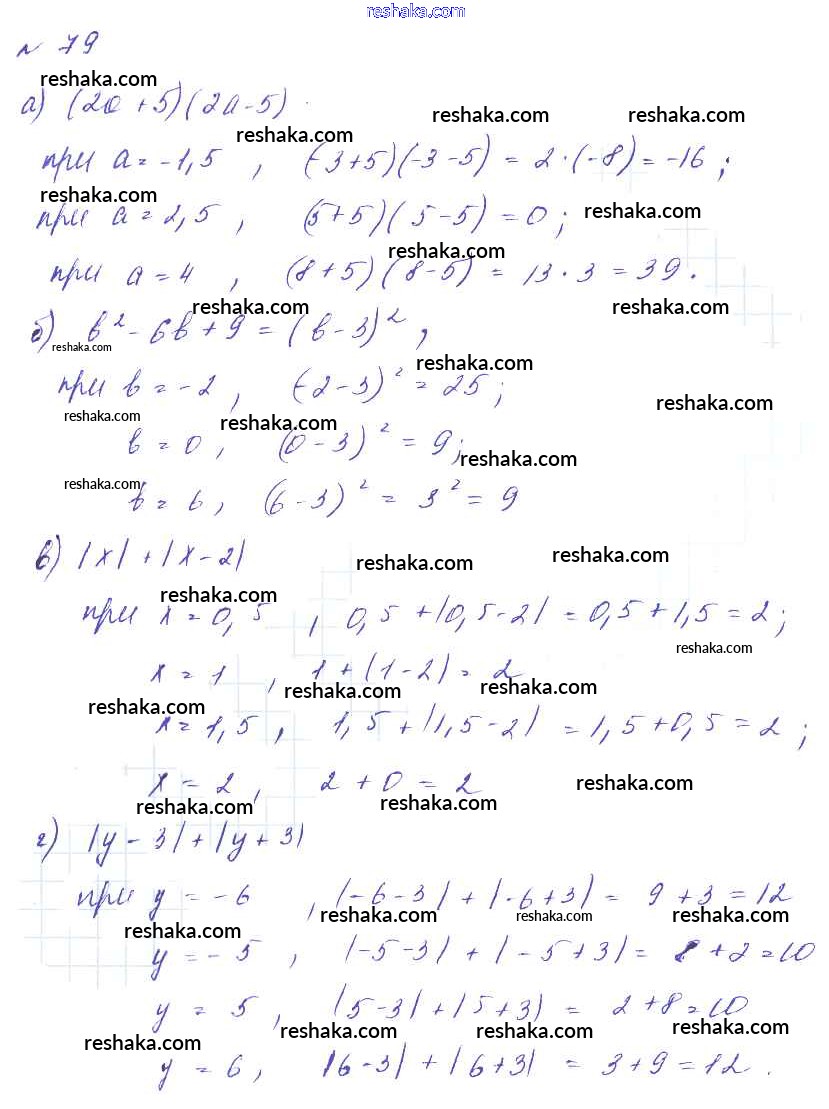 reshaka.com
№ 79
reshaka.com
а) (2a + 5)(2a - 5)
reshaka.com reshaka.com reshaka.com
при a = -1,5 , (-3+5)(-3-5) = 2·(-8) = -16 ;
reshaka.com
при a = 2,5 , (5+5)(5-5) = 0 ; reshaka.com
reshaka.com
при a = 4 , (8+5)(8-5) = 13 · 3 = 39 .
reshaka.com reshaka.com
б) b² - 6b + 9 = (b - 3)² ,
reshaka.com reshaka.com
при b = -2 , (-2-3)² = 25 ;
reshaka.com reshaka.com reshaka.com
b = 0 , (0-3)² = 9 ;
reshaka.com
reshaka.com
b = 6 , (6-3)² = 3² = 9
в) |x| + |x-2|
reshaka.com reshaka.com
reshaka.com
при x = 0,5 , 0,5 + |0,5-2| = 0,5 + 1,5 = 2 ;
reshaka.com
x = 1 , 1 + |1-2| = 2
reshaka.com reshaka.com reshaka.com
x = 1,5 , 1,5 + |1,5-2| = 1,5 + 0,5 = 2 ;
x = 2 , 2 + 0 = 2 reshaka.com
reshaka.com reshaka.com
г) |y - 3| + |y + 3|
при y = -6 , |-6-3| + |-6+3| = 9 + 3 = 12
reshaka.com reshaka.com reshaka.com
reshaka.com
y = -5 , |-5-3| + |-5+3| = 8 + 2 = 10
y = 5 , |5-3| + |5+3| = 2+8 = 10
reshaka.com reshaka.com reshaka.com
reshaka.com
y = 6 , |6-3| + |6+3| = 3+9 = 12 .